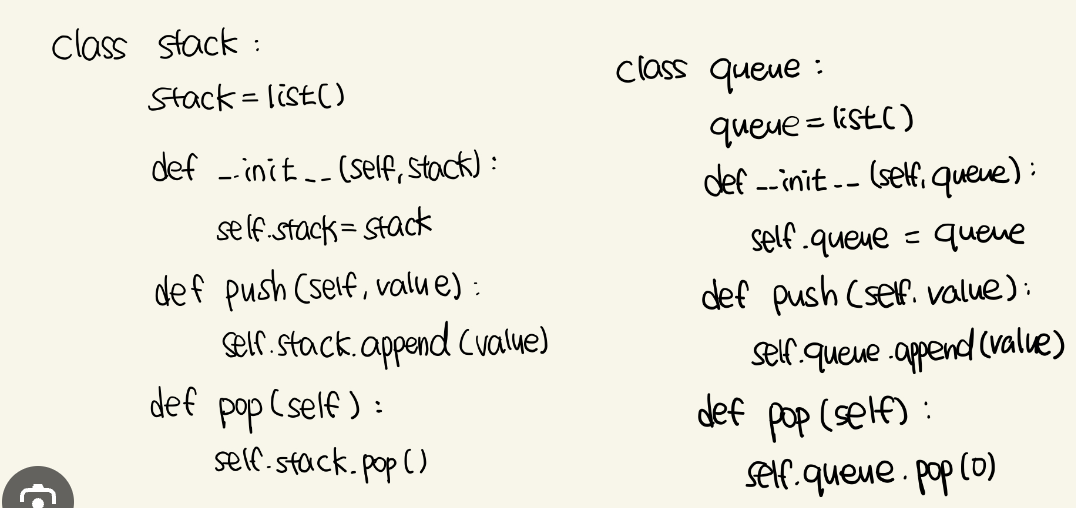 class stack :
stack = list()
def __init__(self, stack) :
self.stack = stack
def push (self, value) :
self.stack.append (value)
def pop (self) :
self.stack.pop ()
class queue :
queue = list()
def __init__ (self, queue) :
self.queue = queue
def push (self. value) :
self.queue.append (value)
def pop (self) :
self.queue.pop (0)